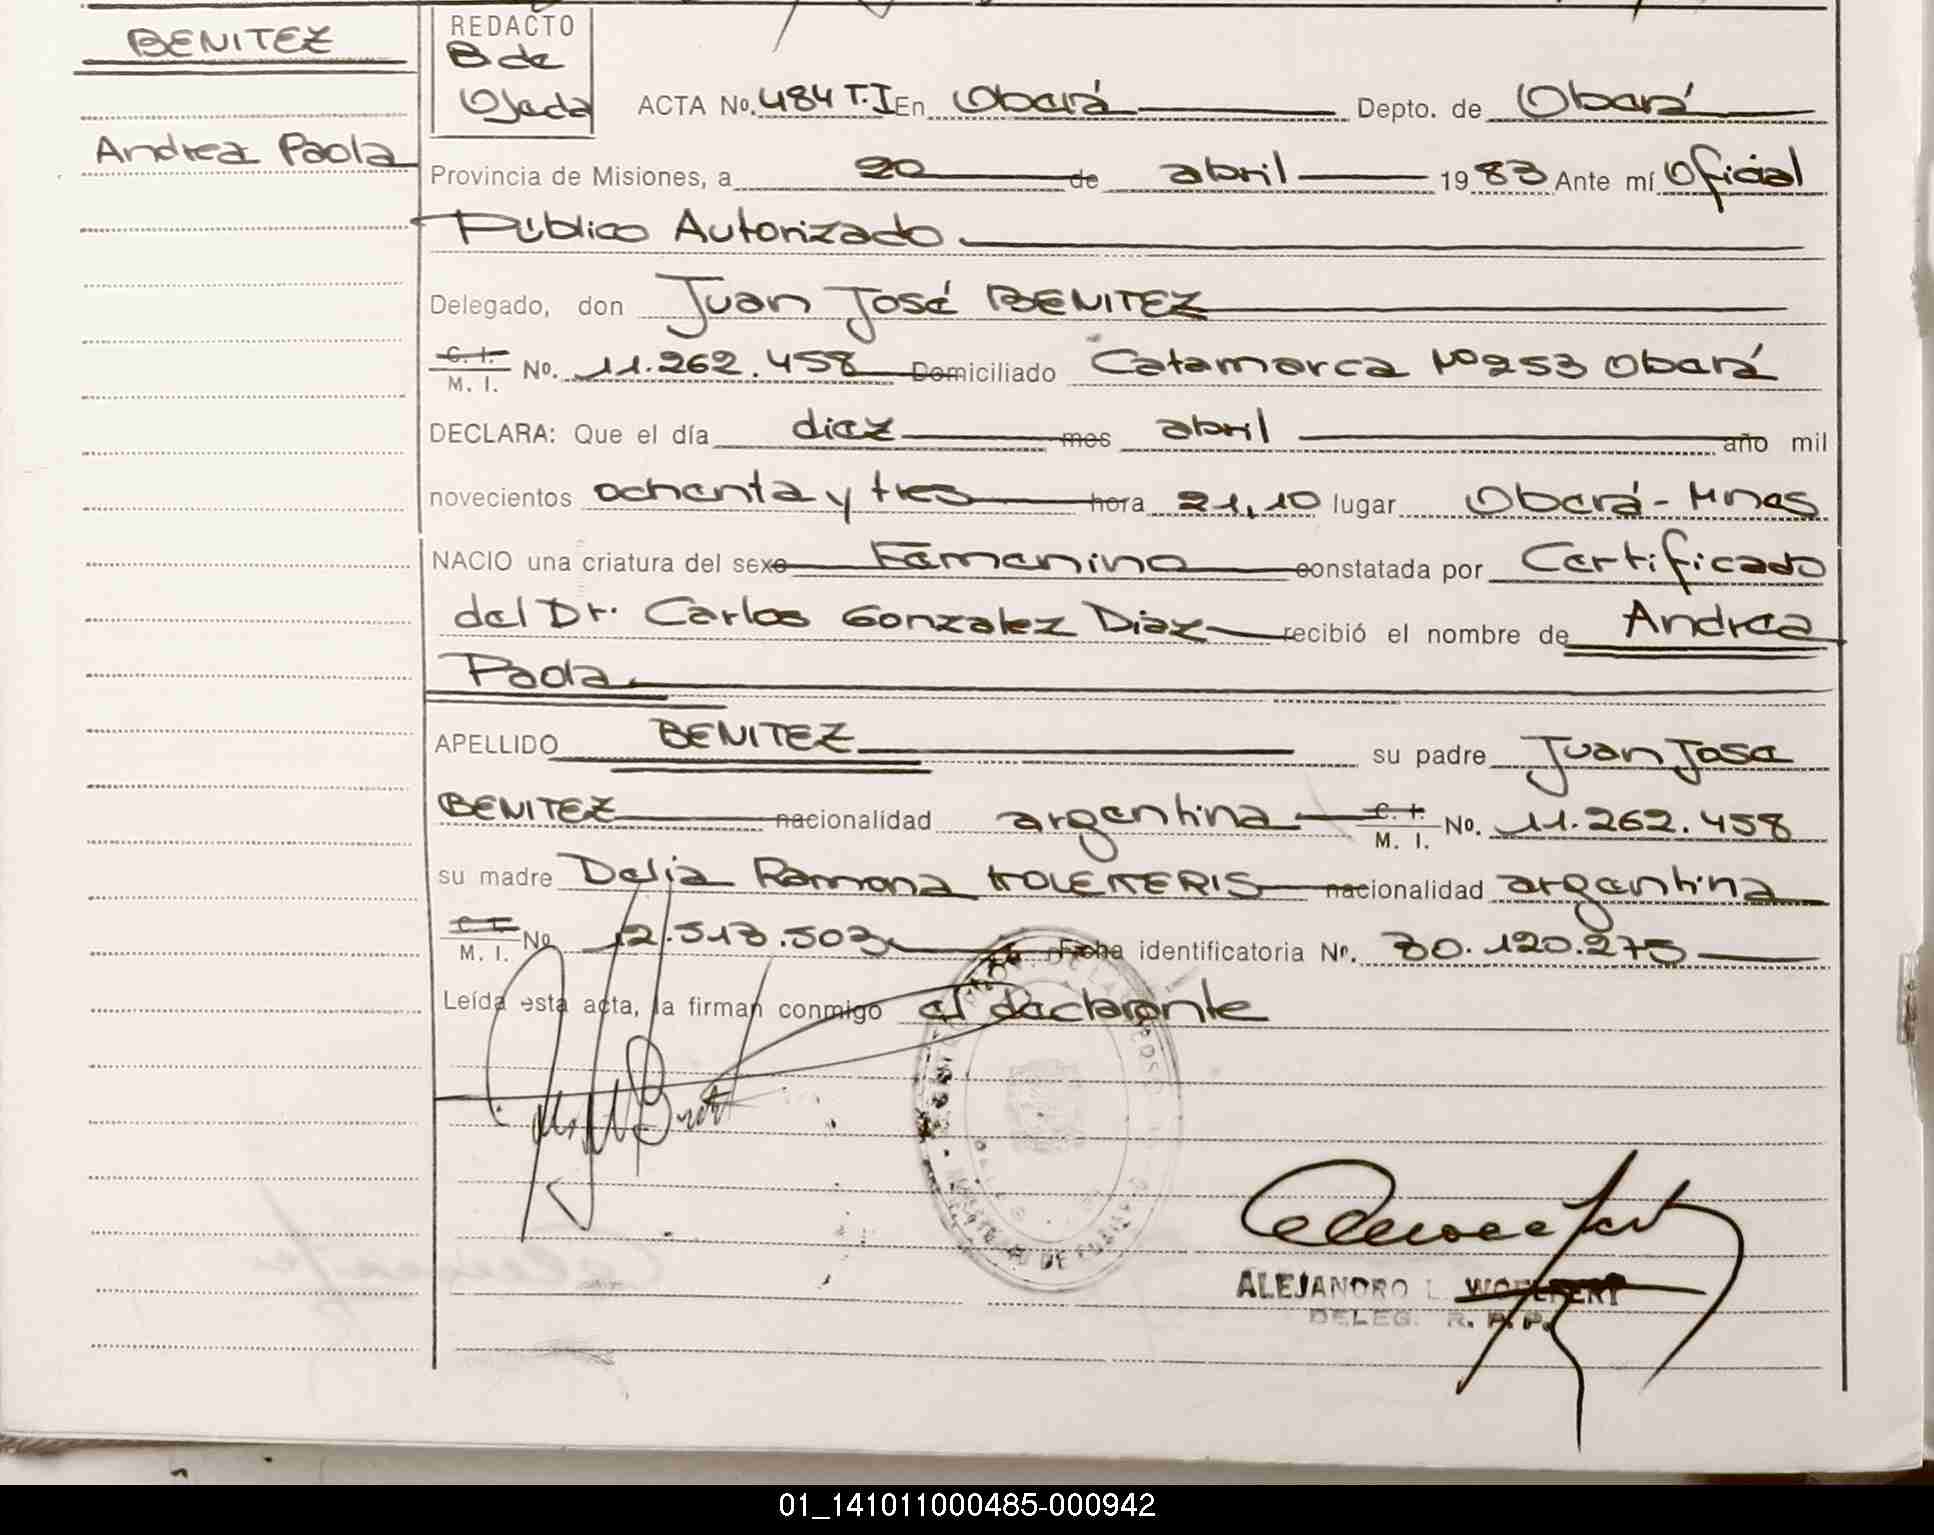 BENITEZ
Andrea Paola
REDACTO
B de
Ojeda
ACTA No. 484 T.I En Oberá Depto. de Oberá
Provincia de Misiones, a 20 de abril 1983 Ante mí Oficial
Público Autorizado
Delegado, don Juan José BENITEZ
C. I.
M. I. No. 11.262.458 Domiciliado Catamarca Nº 253 Oberá
DECLARA: Que el día diez mes abril año mil
novecientos ochenta y tres hora 21,10 lugar Oberá - Mnes
NACIO una criatura del sexo Femenino constatada por Certificado
del Dr. Carlos Gonzalez Diaz recibió el nombre de Andrea
Paola
APELLIDO BENITEZ su padre Juan Jose
BENITEZ nacionalidad argentina C. I.
M. I. No. 11.262.458
su madre Delia Ramona KOLEKERIS nacionalidad argentina
C. I.
M. I. No 12.513.503 Ficha identificatoria Nº. 30.120.275
Leída esta acta, la firman conmigo el declarante
ALEJANDRO L. WOELFERT
DELEG. R. P. P.
01_141011000485-000942